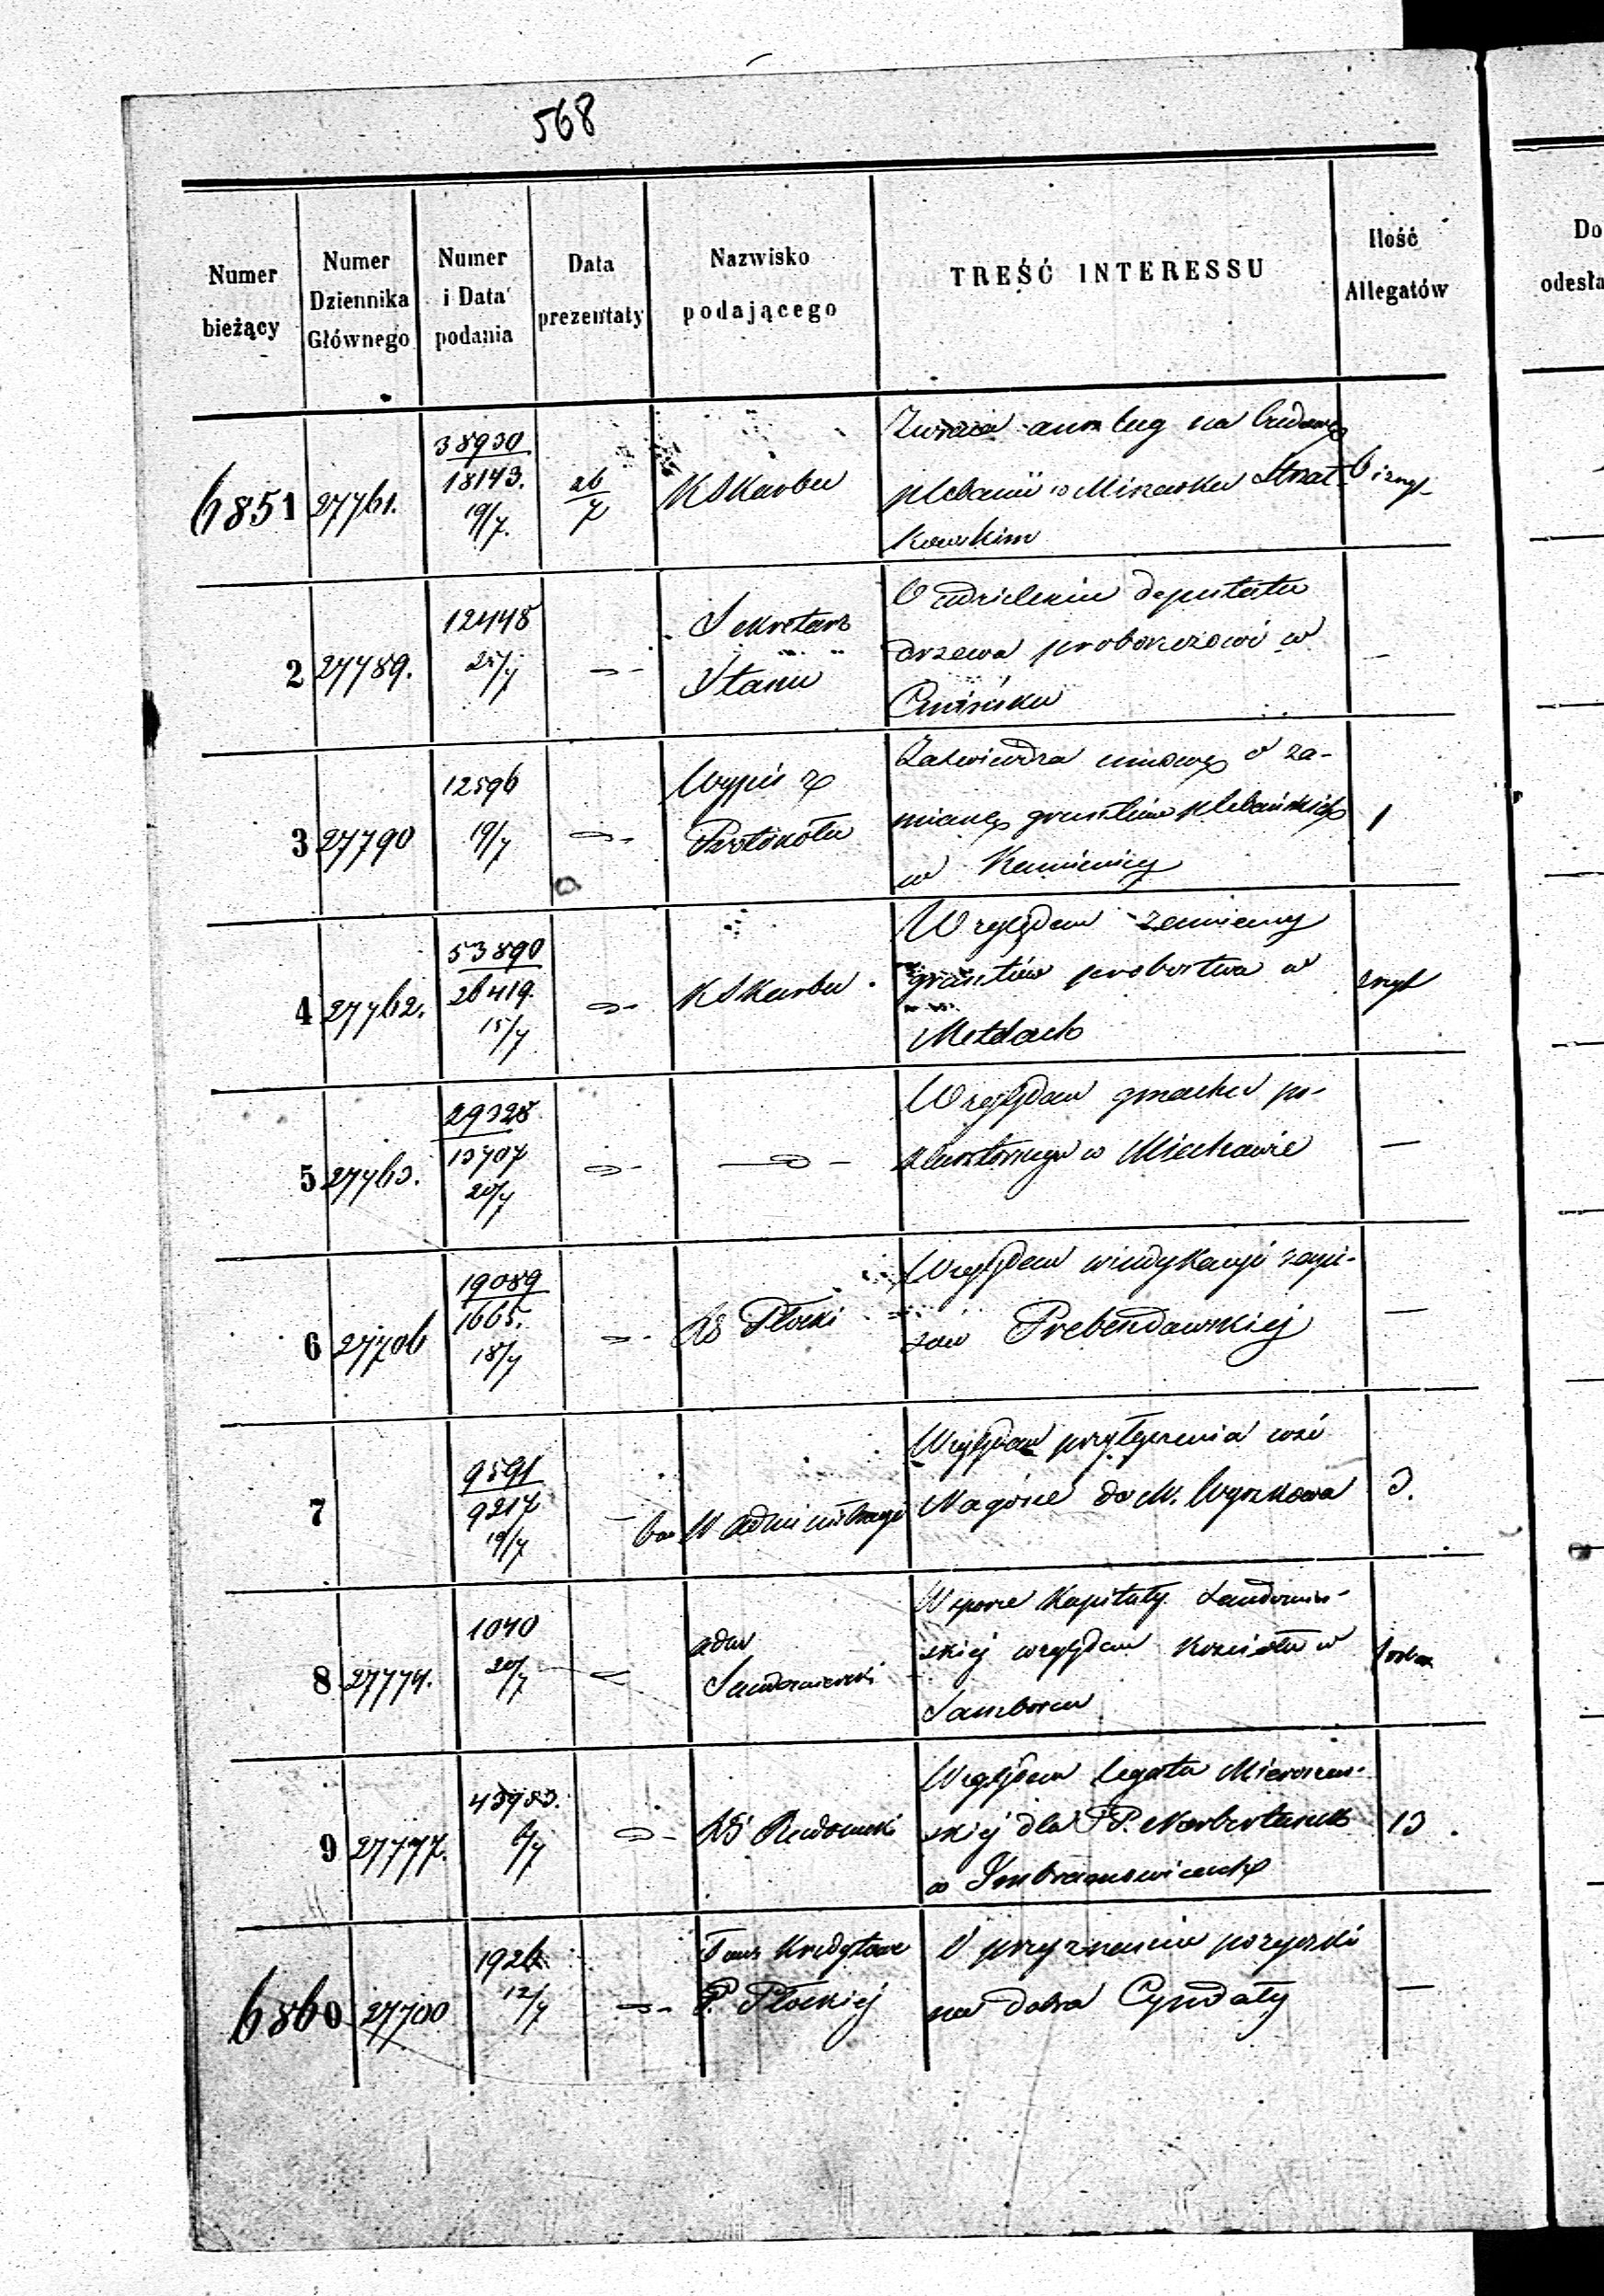 568
Numer bieżący
Numer Dziennika Głównego
Numer i Data podania
Data prezentaty
Nazwisko podającego
TREŚĆ INTERESSU
Ilość Allegatów
Do
odesła
6851 27761. 38930 18143. 19/7. 26/7 K S Karbu
Zwraca na budowę
plebanii w
kowskim
6
2 27789. 12448 25/7 Sekretarz Stanu —
O udzieleniu deputatu
drzewa proboszczowi w
3 27790 12596 19/7 Wypis z Protokółu 1
Zatwierdza umowę o za-
mianę gruntów plebańskich
w Kamienicy
4 27762. 53890 26419. 15/7 K S Karbu
Względem zamiany
gruntów probostwa w
5 27763. 29328 13707 20/7 —
Względem gmachu po-
klasztornego w Miechowie
6 27706 19089 1665. 18/7 RG Płocki —
Względem windykacyi zapi-
sów Prebendowskiej
7 9591 9217 19/7 W Administracyi 3.
Względem przyłączenia wsi
Nagórce do M. Wyszkowa
8 27774. 1040 20/7 adm Sandomierski
W sporze Kapituły Sandomir-
skiej względem Kościoła w
Samborcu
9 27777. 6/7 RG Radomski 13
Względem legatu Mieroszew-
skiej dla PP. Norbertanek
w Imbramowicach
6860 27700 12/7 Tow Kredytowe G. Płockiej —
O przyznaniu pożyczki
na dobra Cyndały